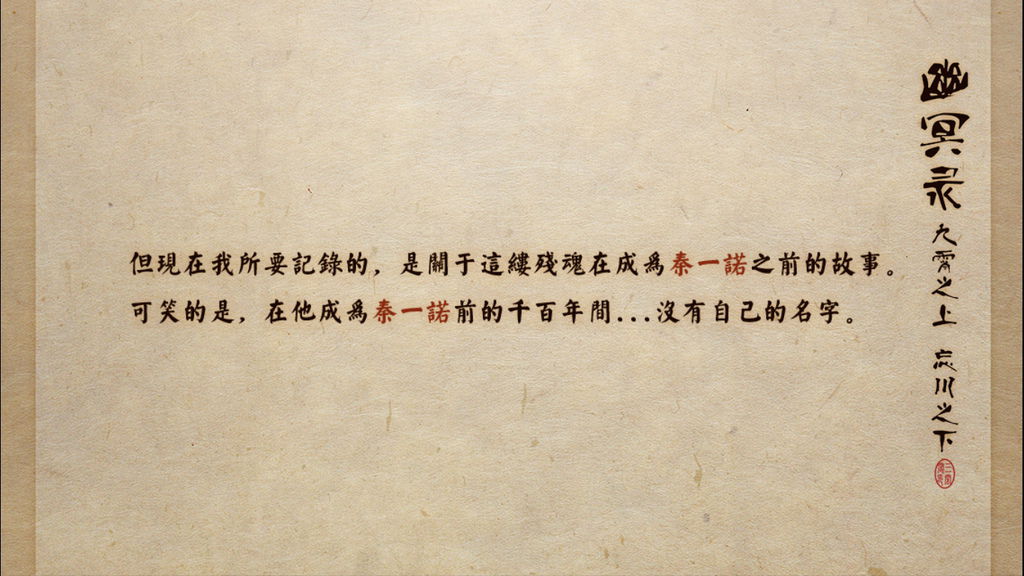 但現在我所要記錄的，是關于這縷殘魂在成爲秦一諾之前的故事。
可笑的是，在他成爲秦一諾前的千百年間...沒有自己的名字。
幽冥录
九霄之上 忘川之下